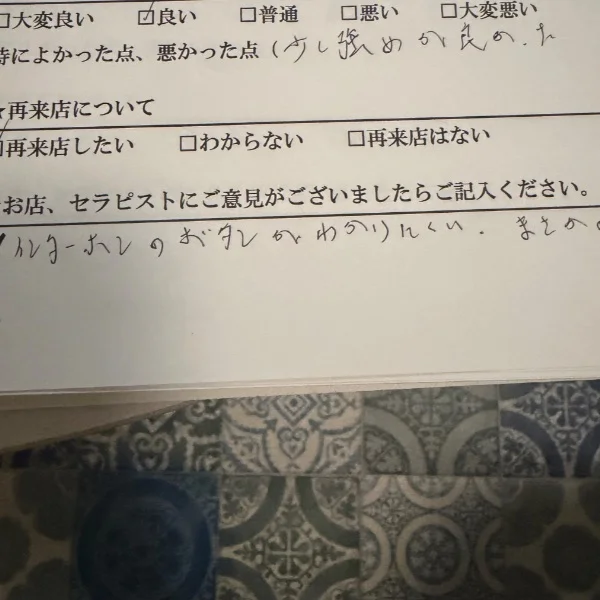 □大変良い ☑良い □普通 □悪い □大変悪い
特によかった点、悪かった点（少し強めが良かった
★再来店について
☑再来店したい □わからない □再来店はない
お店、セラピストにご意見がございましたらご記入ください。
インターホンのボタンがわかりにくい. まさか